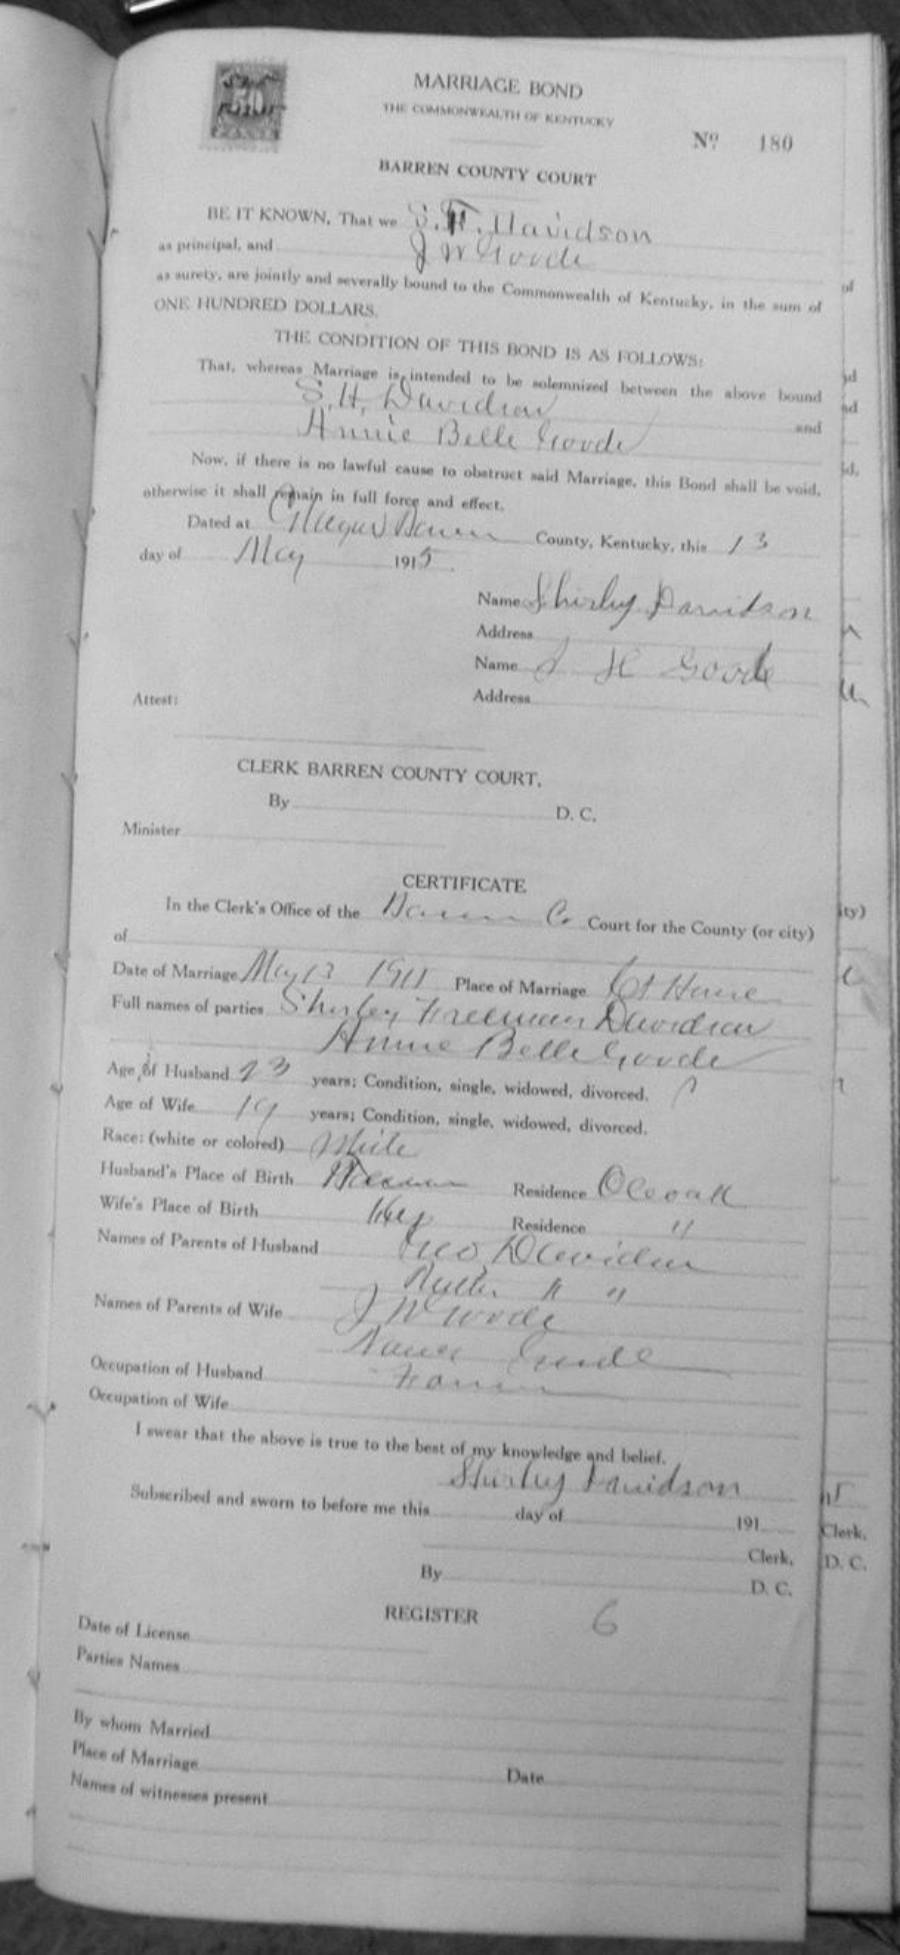 50
MARRIAGE BOND
THE COMMONWEALTH OF KENTUCKY
Nº 180
BARREN COUNTY COURT
BE IT KNOWN, That we S. F. Davidson
as principal, and J W Goode
as surety, are jointly and severally bound to the Commonwealth of Kentucky, in the sum of
ONE HUNDRED DOLLARS.
THE CONDITION OF THIS BOND IS AS FOLLOWS:
That, whereas Marriage is intended to be solemnized between the above bound
S. H. Davidson and
Annie Belle Goode
Now, if there is no lawful cause to obstruct said Marriage, this Bond shall be void,
otherwise it shall remain in full force and effect.
Dated at County, Kentucky, this 13
day of May 1915
Name Shirley Davidson
Address
Name Goode
Address
Attest:
CLERK BARREN COUNTY COURT.
By D. C.
Minister
CERTIFICATE
In the Clerk's Office of the Barren Co Court for the County (or city)
of
Date of Marriage May 13 191 Place of Marriage Ct House
Full names of parties Shirley Freeman Davidson
Annie Belle Goode
Age of Husband 23 years; Condition, single, widowed, divorced.
Age of Wife 19 years; Condition, single, widowed, divorced.
Race: (white or colored) White
Husband's Place of Birth Barren Residence
Wife's Place of Birth Key Residence "
Names of Parents of Husband Geo Davidson
" "
Names of Parents of Wife J W Goode
Goode
Occupation of Husband Farmer
Occupation of Wife
I swear that the above is true to the best of my knowledge and belief.
Shirley Davidson
Subscribed and sworn to before me this day of 191
Clerk.
By D. C.
REGISTER 6
Date of License
Parties Names
By whom Married
Place of Marriage Date
Names of witnesses present
ity)
Clerk.
D. C.